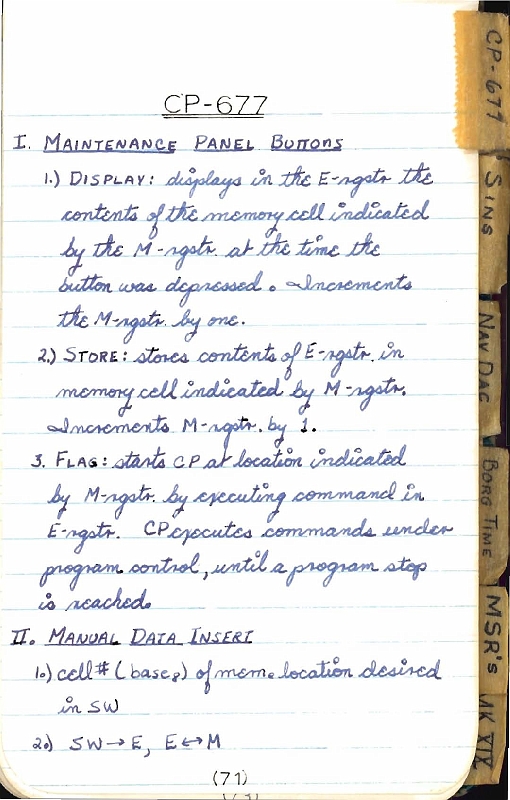 CP-677
I. MAINTENANCE PANEL BUTTONS
1.) DISPLAY: displays in the E-rgstr the
contents of the memory cell indicated
by the M-rgstr. at the time the
button was depressed. Increments
the M-rgstr. by one.
2.) STORE: stores contents of E-rgstr. in
memory cell indicated by M-rgstr.
Increments M-rgstr. by 1.
3. FLAG: starts CP at location indicated
by M-rgstr. by executing command in
E-rgstr. CP executes commands under
program control, until a program stop
is reached.
II. MANUAL DATA INSERT
1.) cell # (base 8) of mem. location desired
in SW
2.) SW→E, E↔M
(71)
CP-677
SINS
NAV DAC
BORG TIME
MSR's
MK XIX